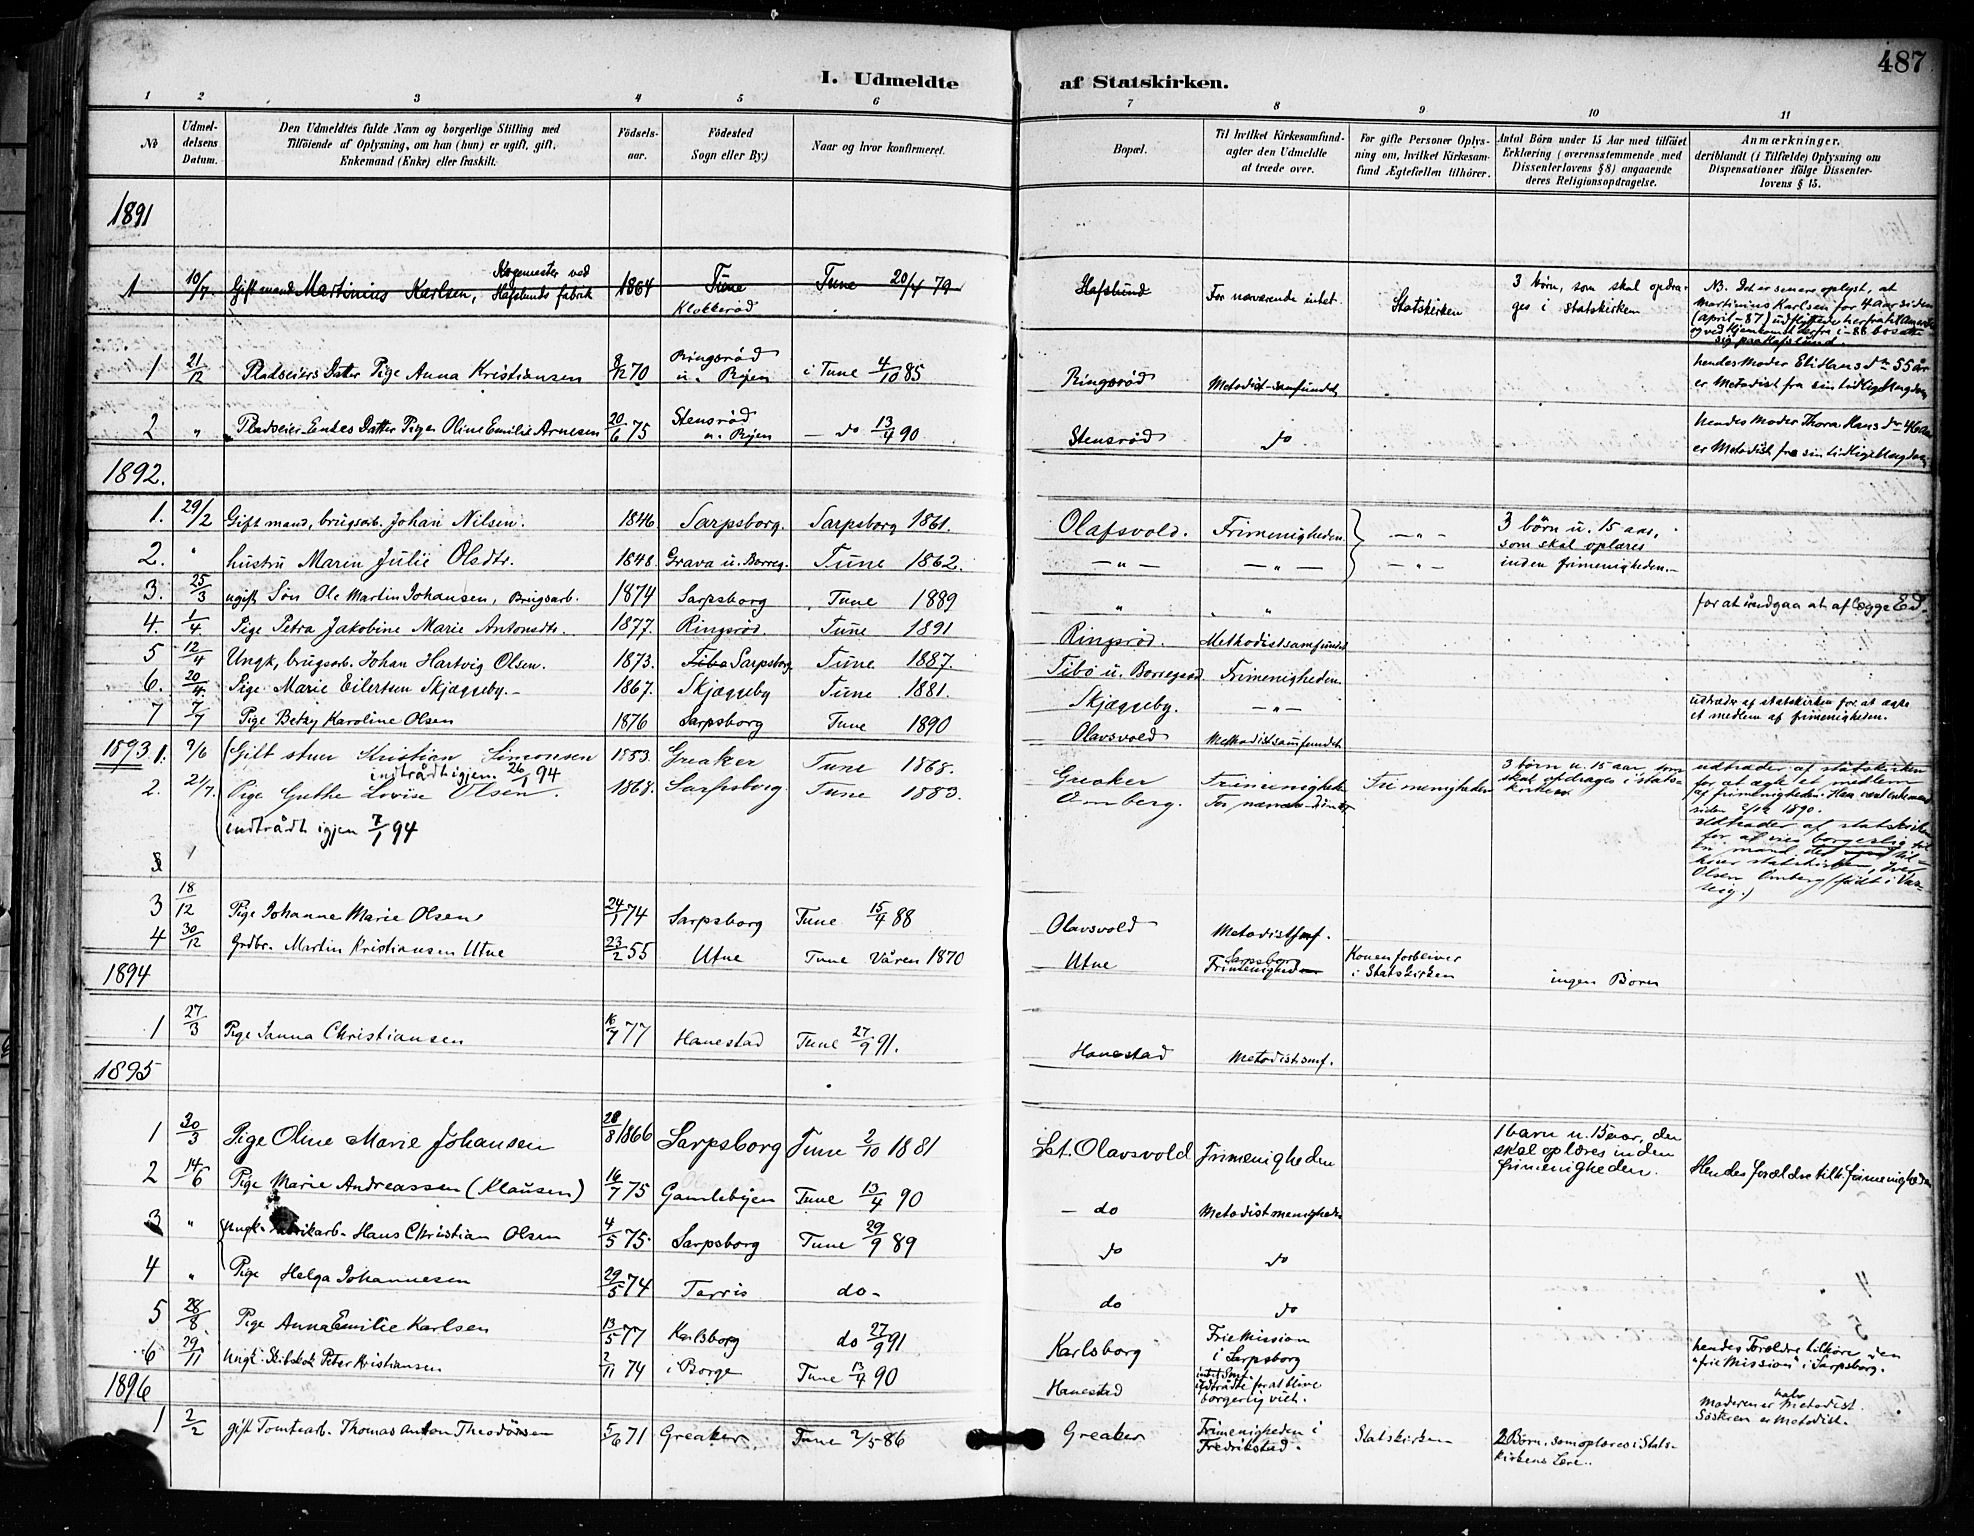 487
I. Udmeldte af Statskirken.
1 2 3 4 5 6 7 8 9 10 11
No
Udmeldelsens Datum.
Den Udmeldtes fulde Navn og borgerlige Stilling med
Tilföiende af Oplysning, om han (hun) er ugift, gift,
Enkemand (Enke) eller fraskilt.
Födselsaar.
Födested
Sogn eller By.)
Naar og hvor konfirmeret.
Bopæl.
Til hvilket Kirkesamfund-
agter den Udmeldte
at træde over.
For gifte Personer Oplys-
ning om, hvilket Kirkesam-
fund Ægtefællen tilhörer.
Antal Börn under 15 Aar med tilföiet
Erklæring (overensstemmende med
Dissenterlovens § 8) angaaende
deres Religionsopdragelse.
Anmærkninger,
deriblandt (i Tilfælde) Oplysning om
Dispensationer ifölge Dissenter-
lovens § 15.
1891
1 10/7 Gift mand Martinius Karlsen, Kogemester ved Hafslunds fabrik 1864 Tune Klokkerød Tune 20/4 79 Hafslund For nærværende intet. Statskirken 3 børn, som skal opdra-
ges i Statskirken
NB. Det er senere oplyst, at
Martinius Karlsen for 4 Aar siden
(April - 87)
sig paa Hafslund.
1 21/12 Pladseiers Datter Pige Anna Kristiansen 8/12 70 Ringsrød u. Røjen i Tune 4/10 85 Ringsrød Metodist-samfundet hendes Moder 55 år
er Metodist fra sin tidlige Ungdom
2 " Pladseier-Enkes Datter Pigen Oline Emilie Arnesen 20/6 75 Stensrød u. Røjen - do 13/4 90 Stensrød do hendes Moder Thora Hansdtr 46 Aar
er Metodist fra sin tidlige Ungdom
1892.
1. 29/2 Gift mand, brugsarb. Johan Nilsen. 1846 Sarpsborg. Sarpsborg 1861. Olafsvold. Frimenigheden - " - 3 børn u. 15 aar,
som skal oplæres
inden frimenigheden.-
2. " hustru Maren Julie Olsdtr. 1848. Grava u. Borreg. Tune 1862. - " - - " - - " -
3. 25/3 ugift Søn Ole Martin Johansen, Brugsarb. 1874 Sarpsborg Tune 1889 " " for at undgaa at aflægge Ed.
4. 1/4. Pige Petra Jakobine Marie Antonsdtr. 1877. Ringsrød. Tune 1891 Ringsrød. Methodistsamfundet
5 12/4 Ungk, brugsarb. Johan Hartvig Olsen. 1873. Tibo Sarpsborg Tune 1887. Tibo u. Borregaard Frimenigheden.
6. 20/4. Pige Marie Eilertsen Skjæggeby.- 1867. Skjæggeby Tune 1881. Skjæggeby. - " - udtræder af statskirken for at ægte
et medlem af frimenigheden.
7 7/7 Pige Betzy Karoline Olsen 1876 Sarpsborg Tune 1890 Olavsvold Methodistsamfundet
1893. 1. 9/6 Gift stuer Kristian Simonsen 1853. Greaker Tune 1868. Greaker Frimenigheden Frimenigheden 3 børn u. 15 aar, som
skal opdrages i stats-
kirken
indtrådt igjen 26/1 94
udtræder af statskirken
for at ægte et medlem
af frimenigheden. Han været enkemand
siden 2/12 1890.
2. 21/7. Pige Guthe Lovise Olsen. 1868. Sarpsborg. Tune 1883. Omberg.
indtrådt igjen 7/1 94
Udtræder af statskirken
for at vies borgerlig til
en mand, der til-
hører statskirken, Iver
Olsen Omberg (født i Var-
teig.)
3 18/12 Pige Johanne Marie Olsen 24/1 74 Sarpsborg Tune 15/4 88 Olavsvold Metodistsmf.
4 30/12 Grdbr. Martin Kristiansen Utne 23/2 55 Utne Tune Våren 1870 Utne Sarpsborg Frimenighed Konen forbliver
i Statskirken ingen Børn
1894
1 27/3 Pige Janna Christiansen 16/7 77 Hanestad Tune 27/9 91. Hanestad Metodistsmf.
1895
1 30/3 Pige Oline Marie Johansen 28/8 1866 Sarpsborg Tune 2/10 1881 St. Olavsvold Frimenigheden 1 barn u. 15 aar, der
skal oplæres inden
frimenigheden. Hendes forældre tilh. frimenigheden
2 14/6 Pige Marie Andreassen (Klausen) 16/7 75 Gamlebyen Tune 13/4 90 - do Metodistmenigheden
3 " Ungk. Fabrikarb. Hans Christian Olsen 4/5 75 Sarpsborg Tune 29/9 89 do do
4 " Pige Helga Johannesen 29/5 74 Torris do - do do
5 28/8 Pige Anna Emilie Karlsen 13/5 77 Karlsborg do 27/9 91 Karlsborg Frie Mission
i Sarpsborg hendes Forældre tilhøre den
"frie Mission" i Sarpsborg.
6 29/11 Ungk. Peter Kristiansen 2/11 74 i Borge Tune 13/4 90 Hanestad intet Smf.
Udtrådte for at blive
borgerlig viet. Moderen er halv Metodist.
Søsteren er Metodist.
1896
1 2/2 gift Tomtearb. Thomas Anton Theodorsen 5/6 71 Greaker Tune 2/5 86 Greaker Frimenigheden i
Fredrikstad. Statskirken 2 Børn, som oplæres i Stats-
kirkens Lære.